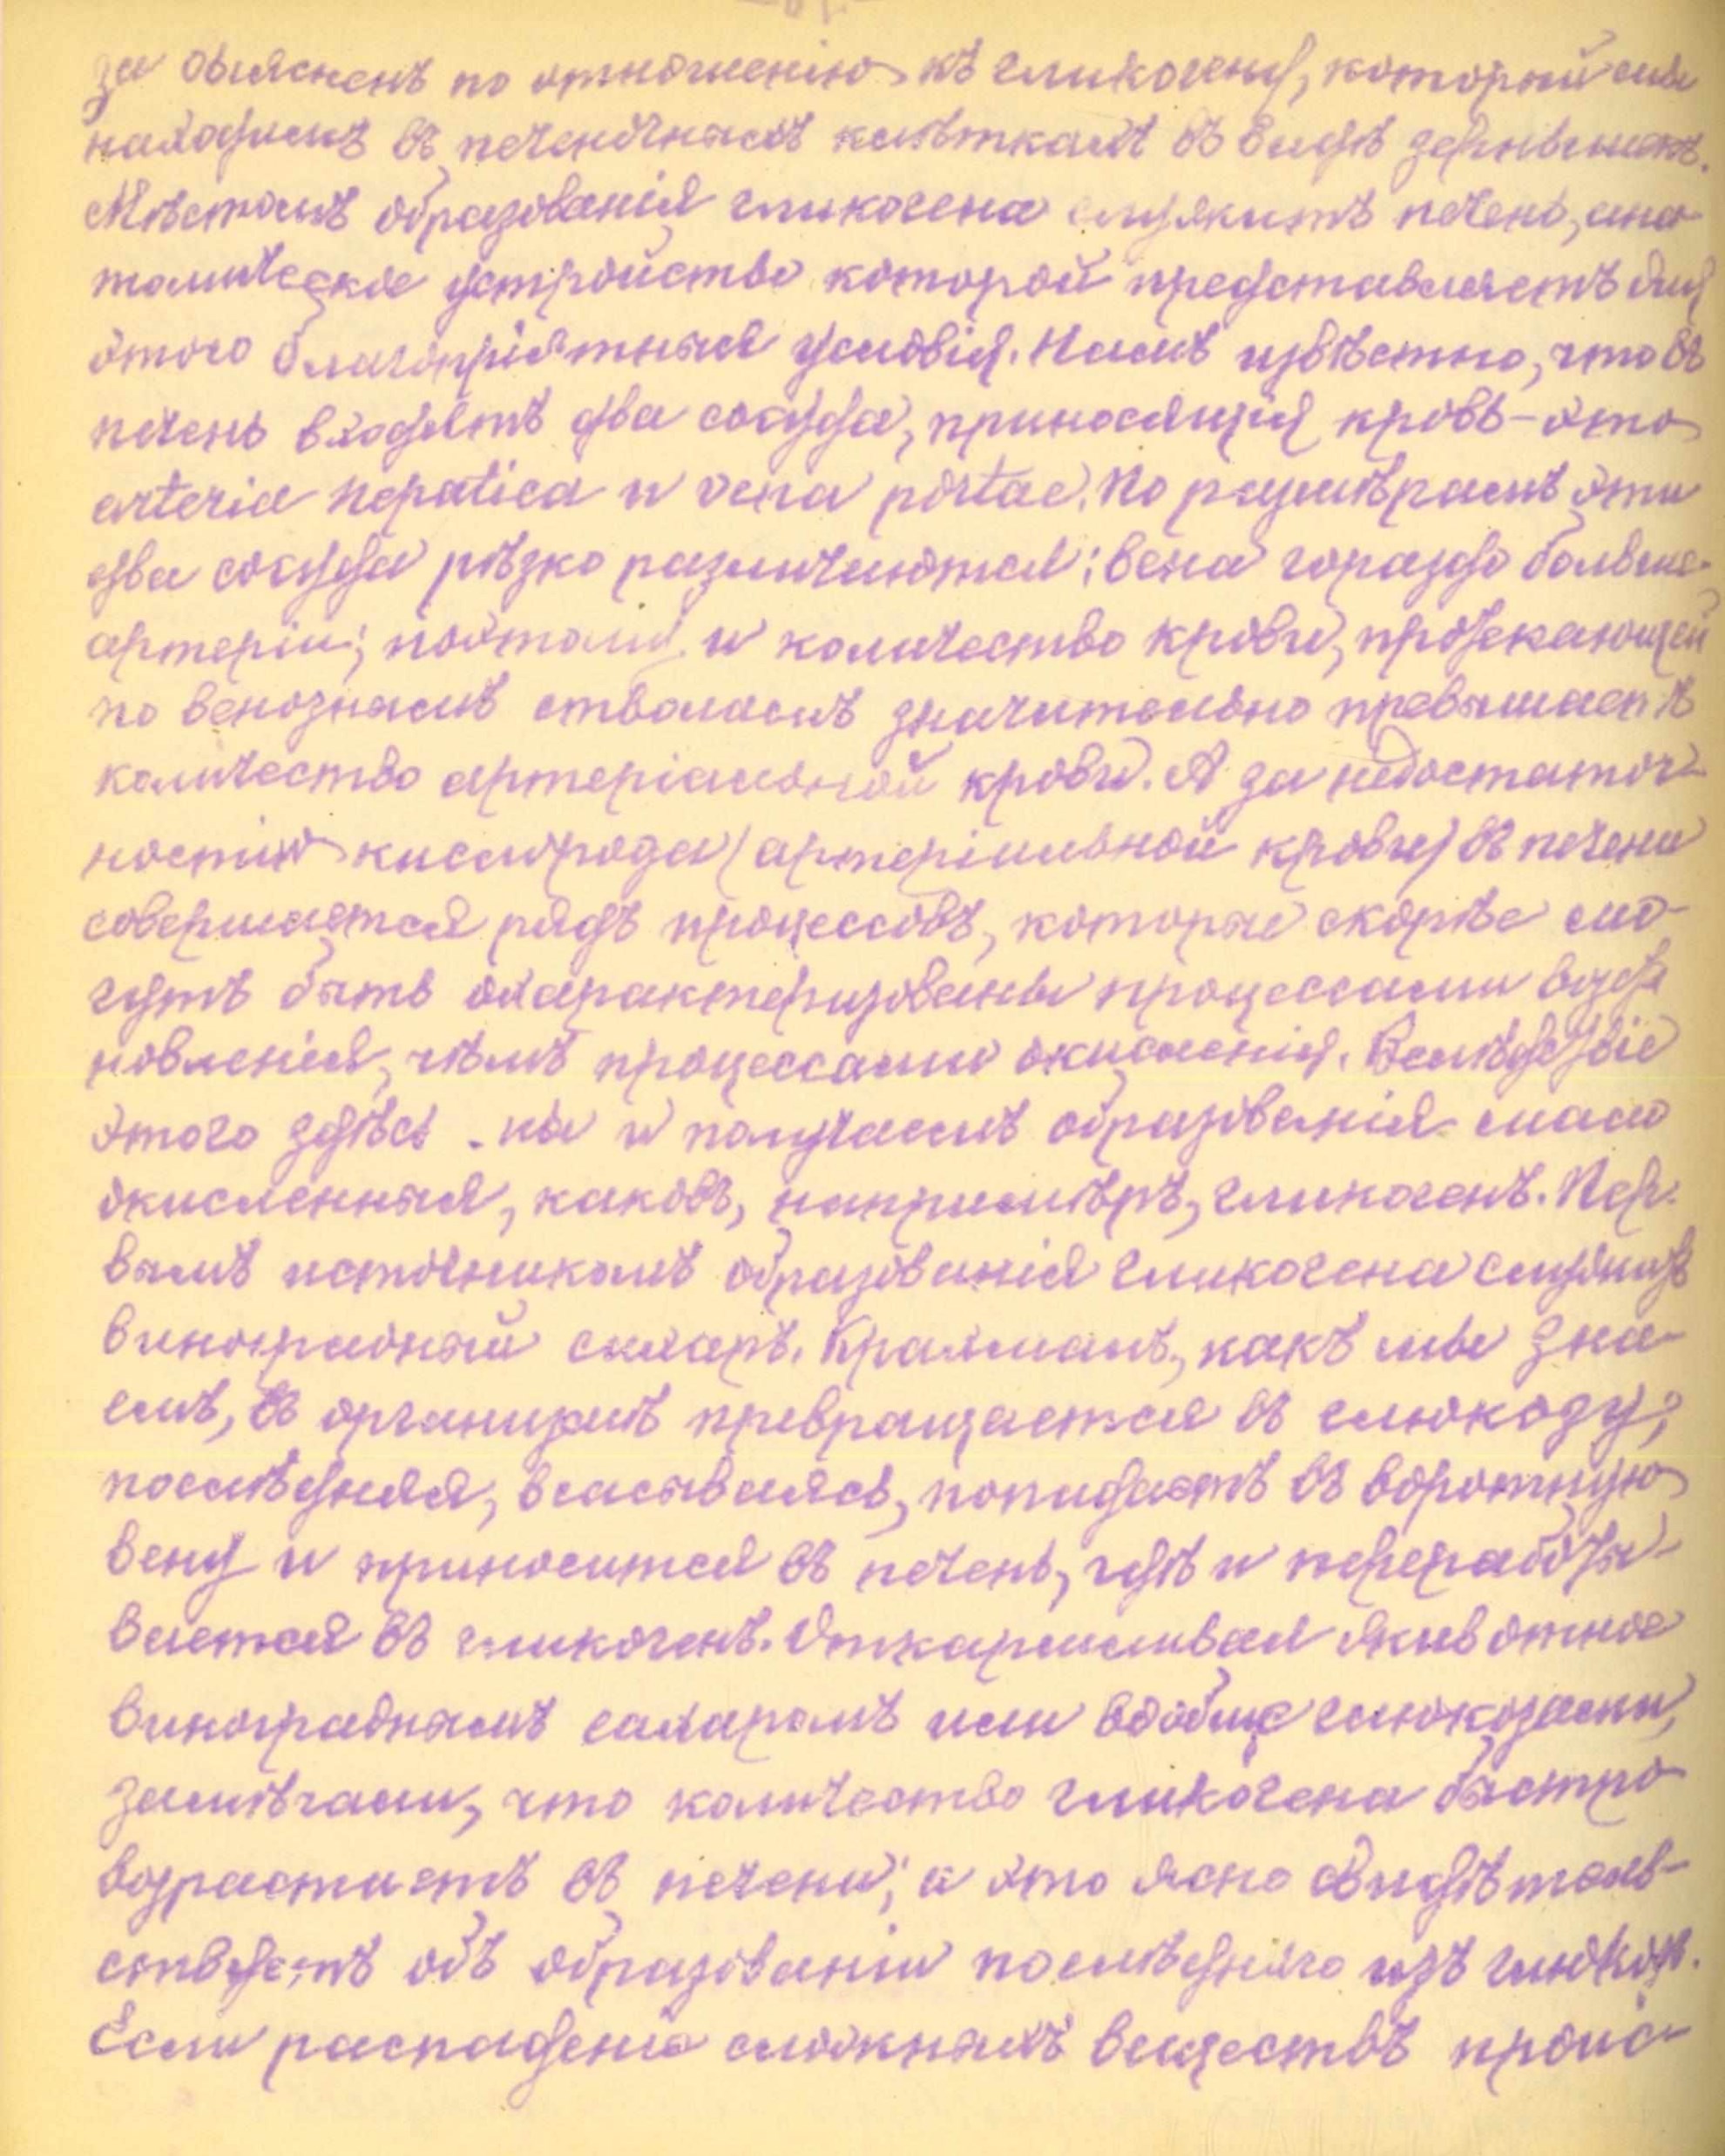 за объясненъ по отношенію къ гликогену, который мы
находимъ въ печеночныхъ клѣткахъ въ видѣ зернышекъ.
Мѣстомъ образованія гликогена служитъ печень, ана-
томическое устройство которой представляетъ для
этого благопріятныя условія. Намъ извѣстно, что въ
печень входятъ два сосуда, приносящія кровь - это
arteria hepatica и vena portae. По размѣрамъ эти
два сосуда рѣзко различаются; вена гораздо больше
артеріи; поэтому и количество крови, протекающей
по венознымъ стволамъ значительно превышаетъ
количество артеріальной крови. А за недостаточ-
ностію кислорода (артеріальной крови) въ печени
совершается рядъ процессовъ, которые скорѣе мо-
гутъ быть охарактеризованы процессами возста
новленія, чѣмъ процессами окисленія. Вслѣдствіе
этого здѣсь - то и получаемъ образованія мало
окисленныя, каковъ, напримѣръ, гликогенъ. Пер-
вымъ источникомъ образованія гликогена служитъ
виноградный сахаръ. Крахмалъ, какъ мы зна-
емъ, въ организмѣ превращается въ глюкозу;
послѣдняя, всасываясь, попадаетъ въ воротную
вену и приносится въ печень, гдѣ и перерабаты-
вается въ гликогенъ. Откармливая животное
винограднымъ сахаромъ или вообще глюкозами,
замѣчали, что количество гликогена быстро
возрастаетъ въ печени; а это ясно свидѣтель-
ствуетъ объ образованіи послѣдняго изъ глюкозъ.
Если распаденіе сложныхъ веществъ проис-